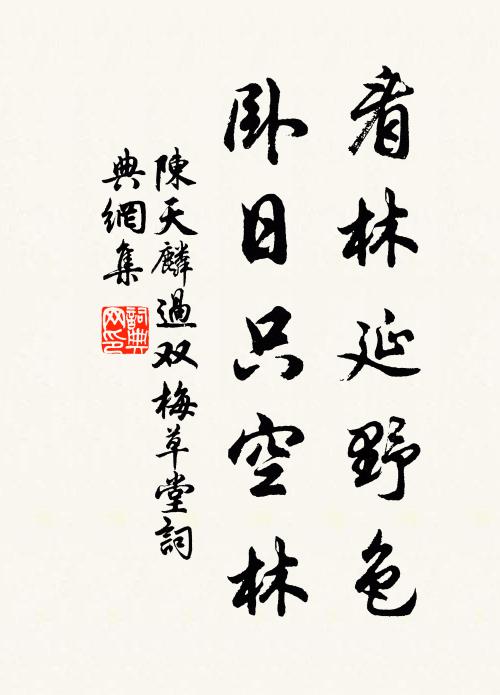 看林延野色
卧日只空林
陳天麟過双梅草堂詞
典網集
詞典网印